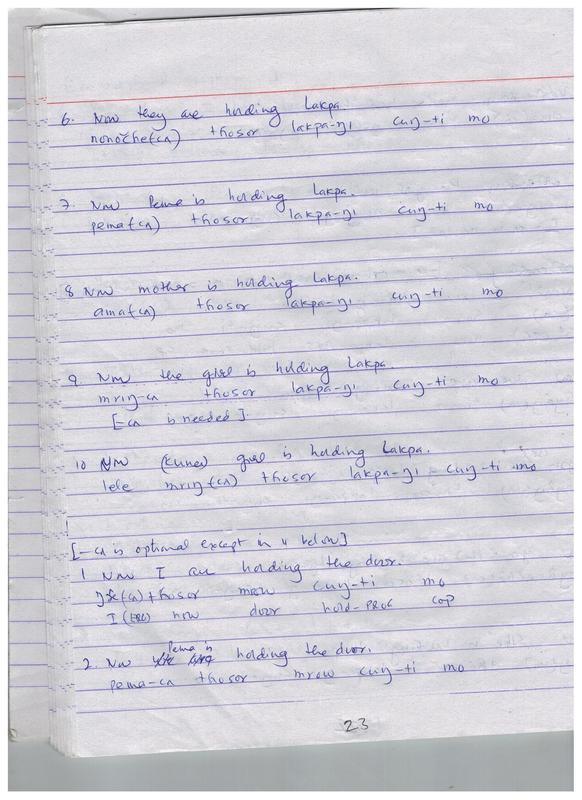 6. Now they are holding Lakpa.
nonočhe(cʌ) thosor lakpa-ŋı cuŋ-ti mo
7. Now Pema is holding Lakpa.
pema(cʌ) thosor lakpa-ŋı cuŋ-ti mo
8 Now mother is holding Lakpa.
ama(cʌ) thosor lakpa-ŋı cuŋ-ti mo
9 Now the girl is holding Lakpa.
mrıŋ-cʌ thosor lakpa-ŋı cuŋ-ti mo
[-cʌ is needed].
10 Now girl is holding Lakpa.
lele mrıŋ(cʌ) thosor lakpa-ŋı cuŋ-ti mo
[-cʌ is optional except in 4 below]
1 Now I am holding the door.
(cʌ) thosor mrow cuŋ-ti mo
I (ERG) now door hold-PROG COP
2. Now Pema is holding the door.
pema-cʌ thosor mrow cuŋ-ti mo
23